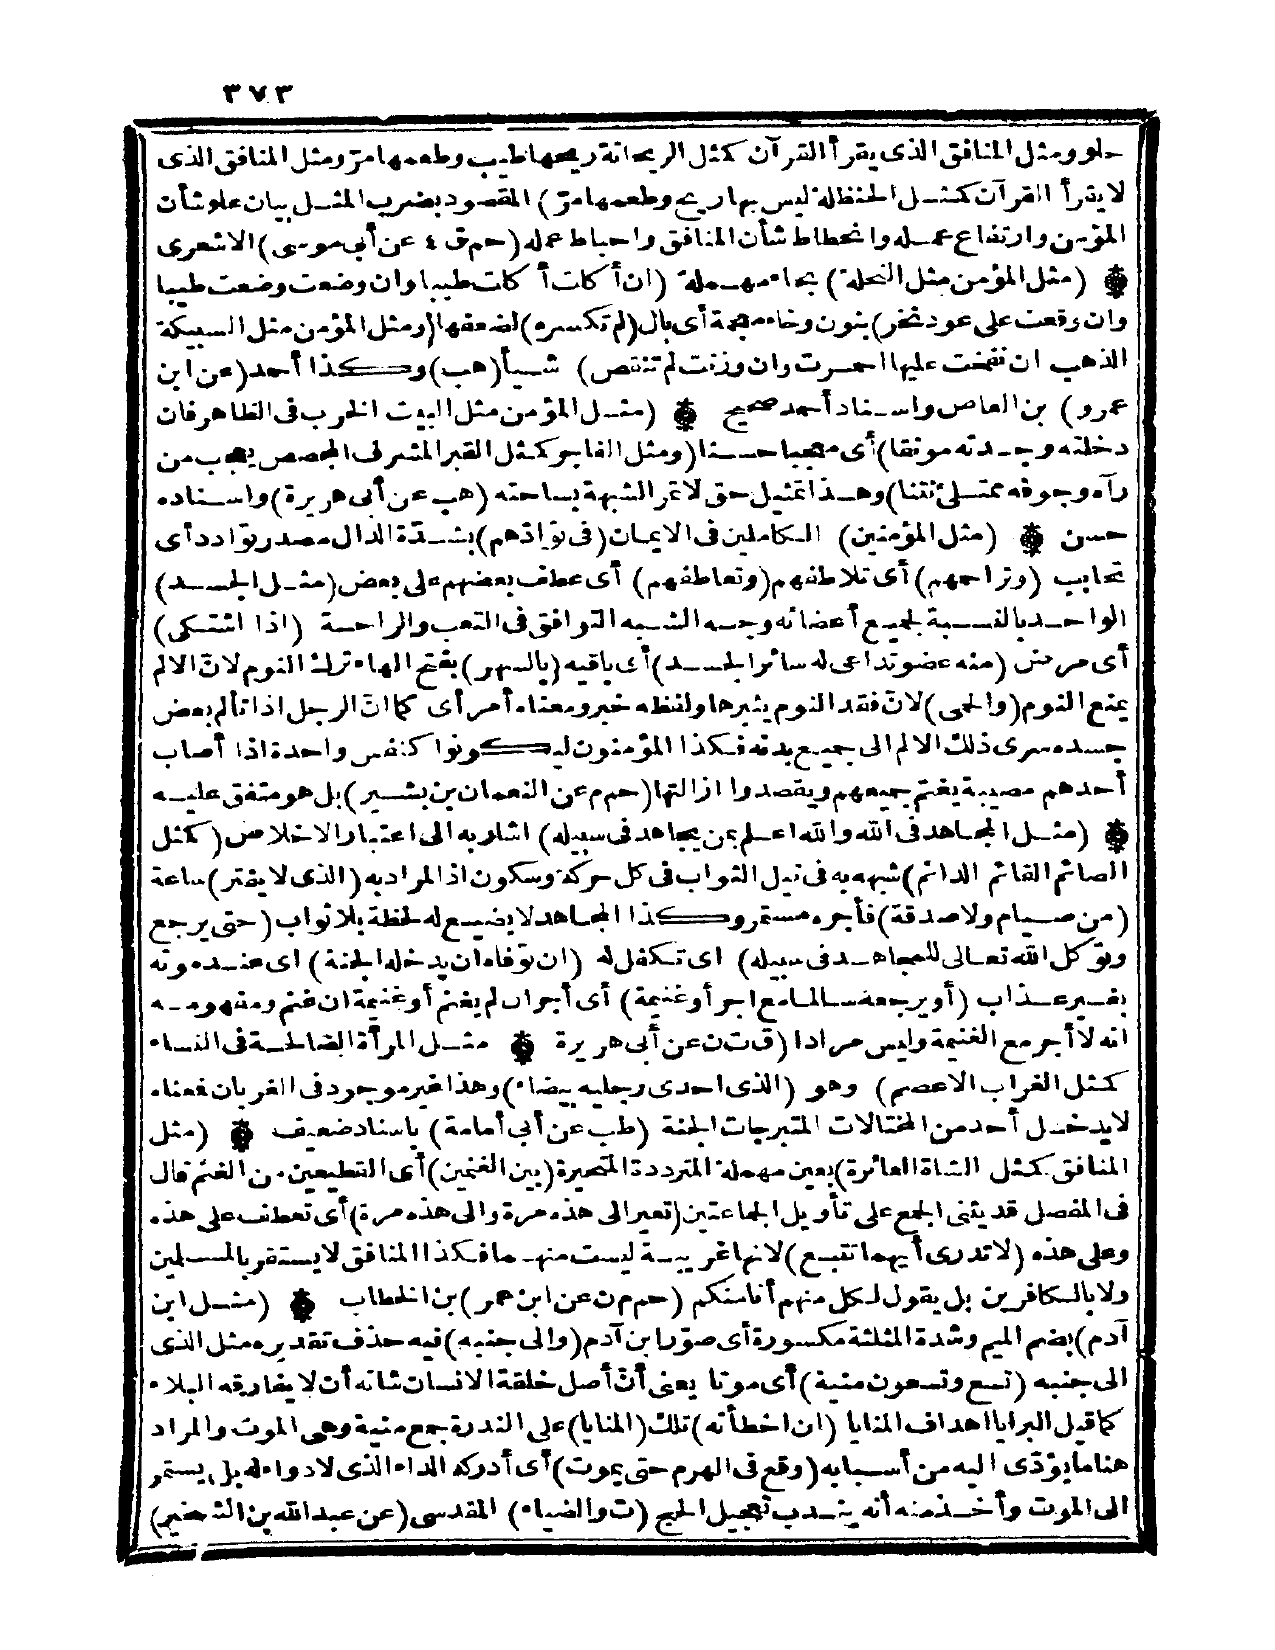 ٣٧٣
حلو ومثل المنافق الذى يقرأ القرآن كمثل الريحانة ريحها طيب وطعمها مرّ ومثل المنافق الذى
لا يقرأ القرآن كمثل الحنظلة ليس بها ريح وطعمها مرّ) المقصود بضرب المثل بيان علو شأن
المؤمن وارتفاع عمله وانحطاط شأن المنافق واحباط عمله (حم ق ٤ عن أبى موسى) الاشعرى
(مثل المؤمن مثل النحلة) بحاء مهملة (ان أكلت أكلت طيبا وان وضعت وضعت طيبا
وان وقعت على عود نخر) بنون وخاء معجمة أى بال (لم تكسره) لضعفها (ومثل المؤمن مثل السبيكة
الذهب ان نفخت عليها احمرت وان وزنت لم تنقص) شيأ (هب) وكذا أحمد (عن ابن
عمرو) بن العاص واسناد أحمد صحيح (مثل المؤمن مثل البيت الخرب فى الظاهر فان
دخلته وجدته مونقا) أى معجبا حسنا (ومثل الفاجر كمثل القبر المشرف المجصص يعجب من
رآه وجوفه ممتلئ نتنا) وهذا تمثيل حق لا غر الشبهة بساحته (هب عن أبى هريرة) واسناده
حسن (مثل المؤمنين) الكاملين فى الايمان (فى توادّهم) بشدة الدال مصدر توادد أى
تحابب (وتراحمهم) أى تلاطفهم (وتعاطفهم) أى عطف بعضهم على بعض (مثل الجسد)
الواحد بالنسبة لجميع أعضائه وجه الشبه التوافق فى التعب والراحة (اذا اشتكى)
أى مرض (منه عضو تداعى له سائر الجسد) أى باقيه (بالسهر) بفتح الهاء ترك النوم لانّ الالم
يمنع النوم (والحمى) لانّ فقد النوم يثيرها ولفظه خبر ومعناه أمر أى كما انّ الرجل اذا تألم بعض
جسده سرى ذلك الالم الى جميع بدنه فكذا المؤمنون ليكونوا كنفس واحدة اذا أصاب
أحدهم مصيبة يغتم جميعهم ويقصدوا ازالتها (حم م عن النعمان بن بشير) بل هو متفق عليه
(مثل المجاهد فى الله والله اعلم بمن يجاهد فى سبيله) اشار به الى اعتبار الاخلاص (كمثل
الصائم القائم الدائم) شبهه به فى نيل الثواب فى كل حركة وسكون اذ المراد به (الذى لا يفتر) ساعة
(من صيام ولا صدقة) فأجره مستمر وكذا المجاهد لا يضيع له لحظة بلا ثواب (حتى يرجع
وتوكل الله تعالى للمجاهد فى سبيله) اى تكفل له (ان توفاه ان يدخله الجنة) اى عند موته
بغير عذاب (أو يرجعه سالما مع اجر أو غنيمة) أى أجر ان لم يغنم أو غنيمة ان غنم ومفهومه
انه لا أجر مع الغنيمة وليس مرادا (ق ت ن عن أبى هريرة مثل المرأة الصالحة فى النساء
كمثل الغراب الاعصم) وهو (الذى احدى رجليه بيضاء) وهذا غير موجود فى الغربان فمعناه
لا يدخل أحد من المختالات المتبرجات الجنة (طب عن أبى أمامة) باسناد ضعيف (مثل
المنافق كمثل الشاة العائرة) بعين مهملة المترددة المتحيرة (بين الغنمين) أى القطيعين من الغنم قال
فى المفصل قد يثنى الجمع على تأويل الجماعتين (تعير الى هذه مرة والى هذه مرة) أى تعطف على هذه
وعلى هذه (لا تدرى أيهما تتبع) لانها غريبة ليست منهما فكذا المنافق لا يستقر بالمسلمين
ولا بالكافرين بل يقول لكل منهم أنا منكم (حم م ن عن ابن عمر) بن الخطاب (مثل ابن
آدم) بضم الميم وشدة المثلثة مكسورة أى صوّر ابن آدم (والى جنبه) فيه حذف تقديره مثل الذى
الى جنبه (تسع وتسعون منية) أى موتا يعنى أنّ أصل خلقة الانسان شانه أن لا يفارقه البلاء
كما قيل البرايا اهداف المنايا (ان اخطأته) تلك (المنايا) على الندرة جمع منية وهى الموت والمراد
هنا ما يؤدّى اليه من أسبابه (وقع فى الهرم حتى يموت) أى أدركه الداء الذى لا دواء له بل يستمر
الى الموت وأخذ منه أنه يندب تعجيل الحج (ت والضياء) المقدسى (عن عبد الله بن الشخير)